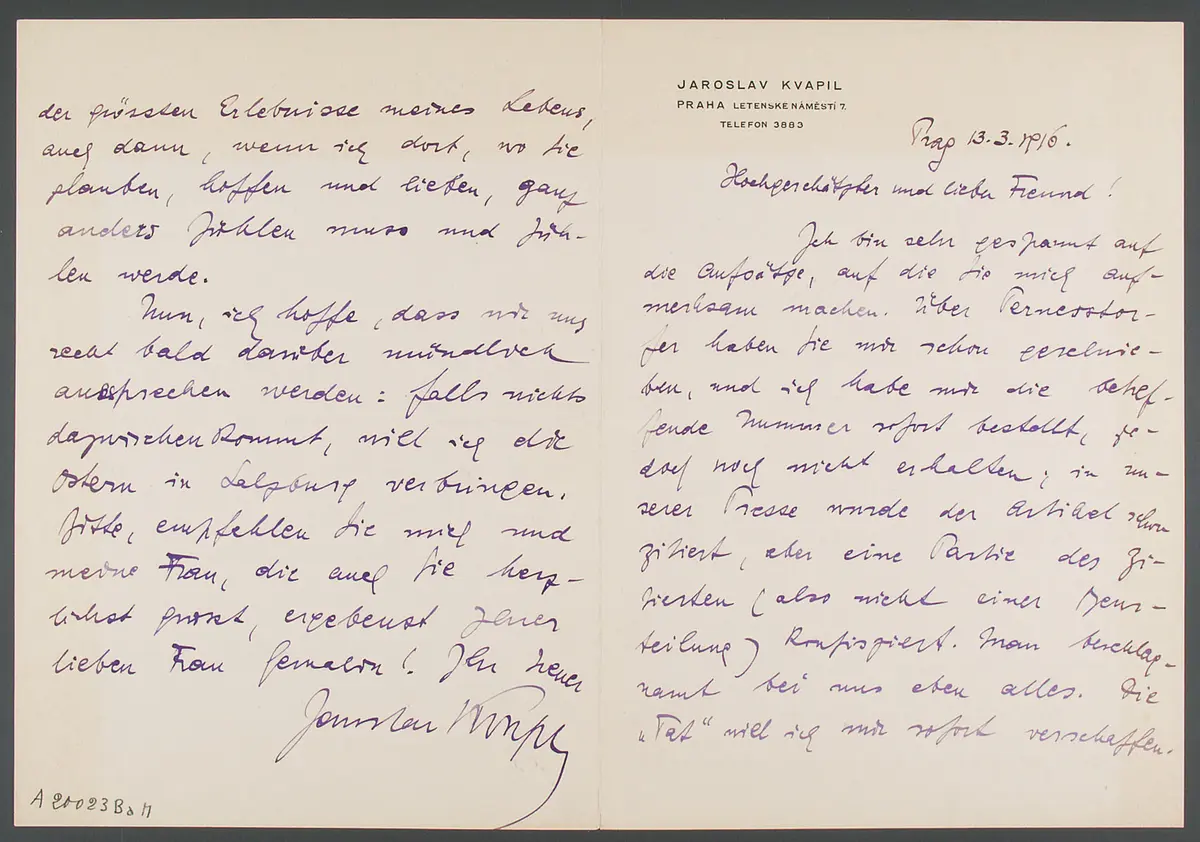 JAROSLAV KVAPIL
PRAHA LETENSKE NÁMĚSTÍ 7.
TELEFON 3883
Prag 13.3.1916.
Hochgeschätzter und lieber Freund!
Ich bin sehr gespannt auf
die Aufsätze, auf die Sie mich auf-
merksam machen. Über Pernerstor-
fer haben Sie mir schon geschrie-
ben, und ich habe mir die betref-
fende Nummer sofort bestellt, je-
doch noch nicht erhalten; in un-
serer Presse wurde der Artikel schon
zitiert, aber eine Partie des Zi-
tierten (also nicht einer Beur-
teilung) konfisziert. Man beschlag-
namt bei uns eben alles. Die
„Tat“ will ich mir sofort verschaffen.
der grössten Erlebnisse meines Lebens,
auch dann, wenn ich dort, wo Sie
glauben, hoffen und lieben, ganz
anders fühlen muss und füh-
len werde.
Nun, ich hoffe, dass wir uns
recht bald darüber mündlich
aussprechen werden: falls nichts
dazwischen kommt, will ich die
Ostern in Salzburg verbringen.
Bitte, empfehlen Sie mich und
meine Frau, die auch Sie herz-
lichst grüsst, ergebenst Ihrer
lieben Frau Gemalin! Ihr treuer
Jaroslav Kvapil
A 20023 Ba M